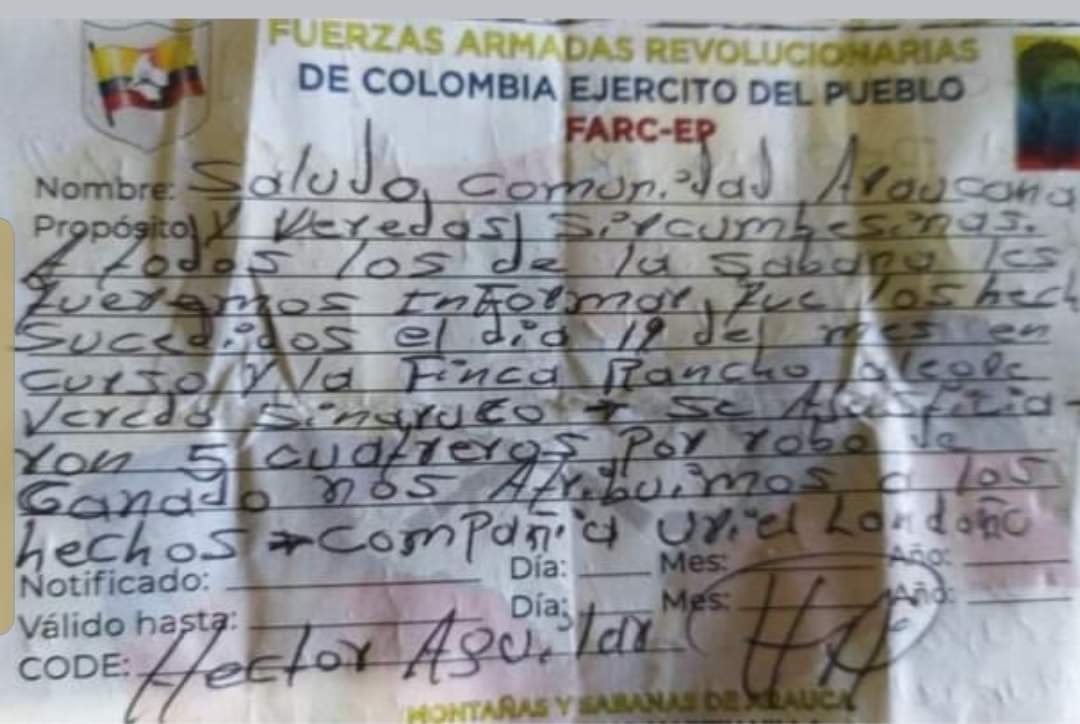 FUERZAS ARMADAS REVOLUCIONARIAS
DE COLOMBIA EJERCITO DEL PUEBLO
FARC-EP
Nombre: Saludo, comunidad Araucana
Propósito: Y Veredas, Sircumbesinas.
A todos los de la sabana les
Queremos Informar, Que los hech
Sucedidos el día 19 del mes en
curso, Y la Finca Rancho
Vereda Sinaruco + se Ajustitia-
ron 5 cuatreros Por robo de
Ganado nos Atribuimos a los
hechos + compañia uriel Londoño
Notificado: Día: Mes: Año:
Válido hasta: Día: Mes: Año:
CODE: Hector Aguilar HA
MONTAÑAS Y SABANAS DE ARAUCA